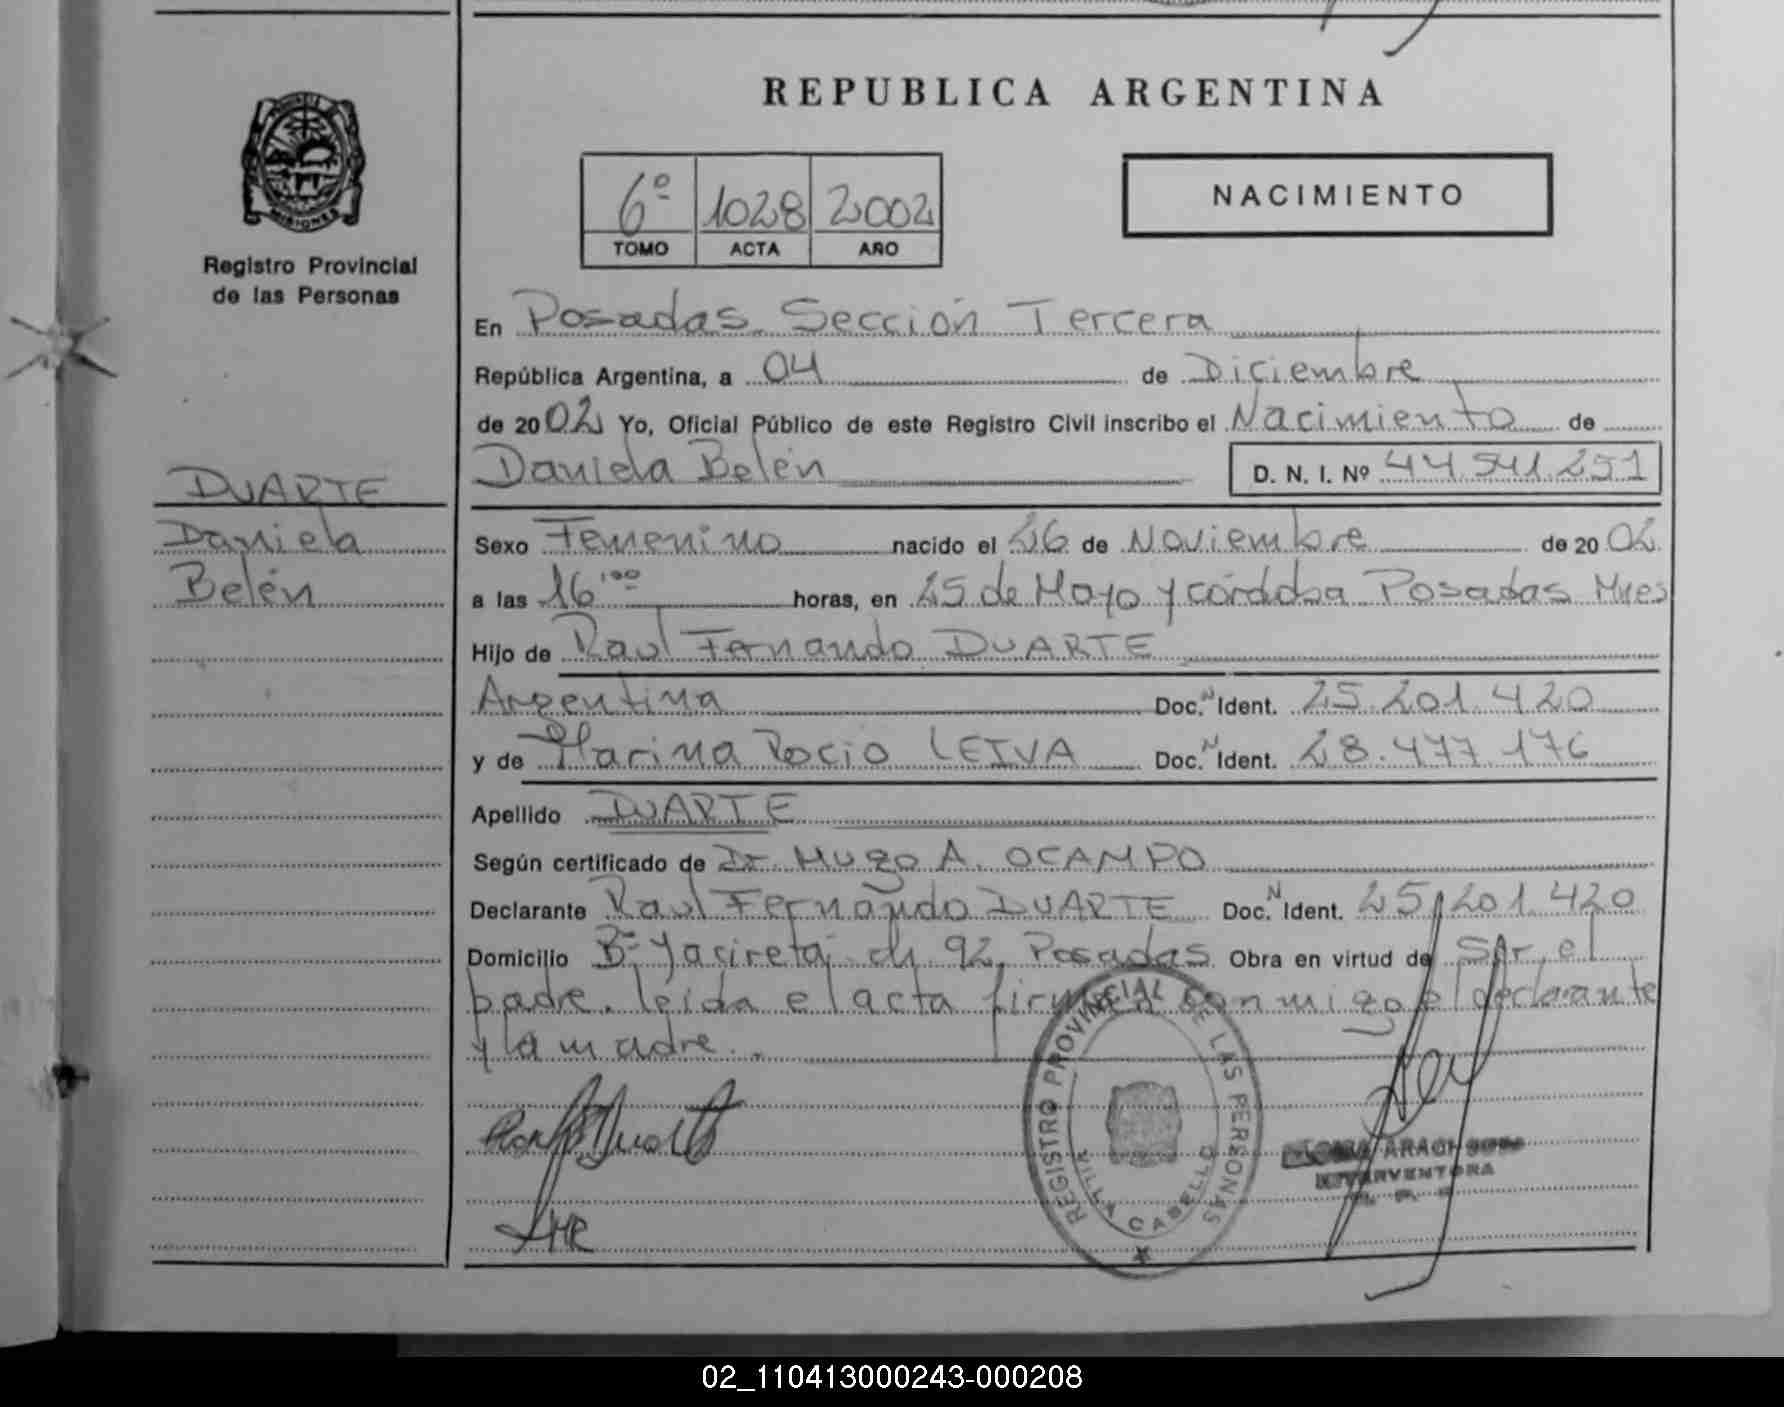 REPUBLICA ARGENTINA
MISIONES
Registro Provincial
de las Personas
6º 1028 2002
TOMO ACTA AÑO
NACIMIENTO
En Posadas Sección Tercera
República Argentina, a 04 de Diciembre
de 2002 Yo, Oficial Público de este Registro Civil inscribo el Nacimiento de
Daniela Belén D. N. I. Nº 44.541.251
DUARTE
Daniela
Belén
Sexo Femenino nacido el 26 de Noviembre de 2002
a las 16'00 horas, en 25 de Mayo y córdoba Posadas Mnes
Hijo de Raul Fernando DUARTE
Argentina Doc. N Ident. 25.201.420
y de Marina Rocio LEIVA Doc. N Ident. 28.477.176
Apellido DUARTE
Según certificado de Dr. Hugo A. OCAMPO
Declarante Raul Fernando DUARTE Doc. N Ident. 25.201.420
Domicilio Bº Yacireta ch 92 Posadas Obra en virtud de Ser el
padre. leida el acta firma conmigo el declarante
y la madre..
REGISTRO PROVINCIAL DE LAS PERSONAS
VILLA CABELLO
INTERVENTORA
02_110413000243-000208